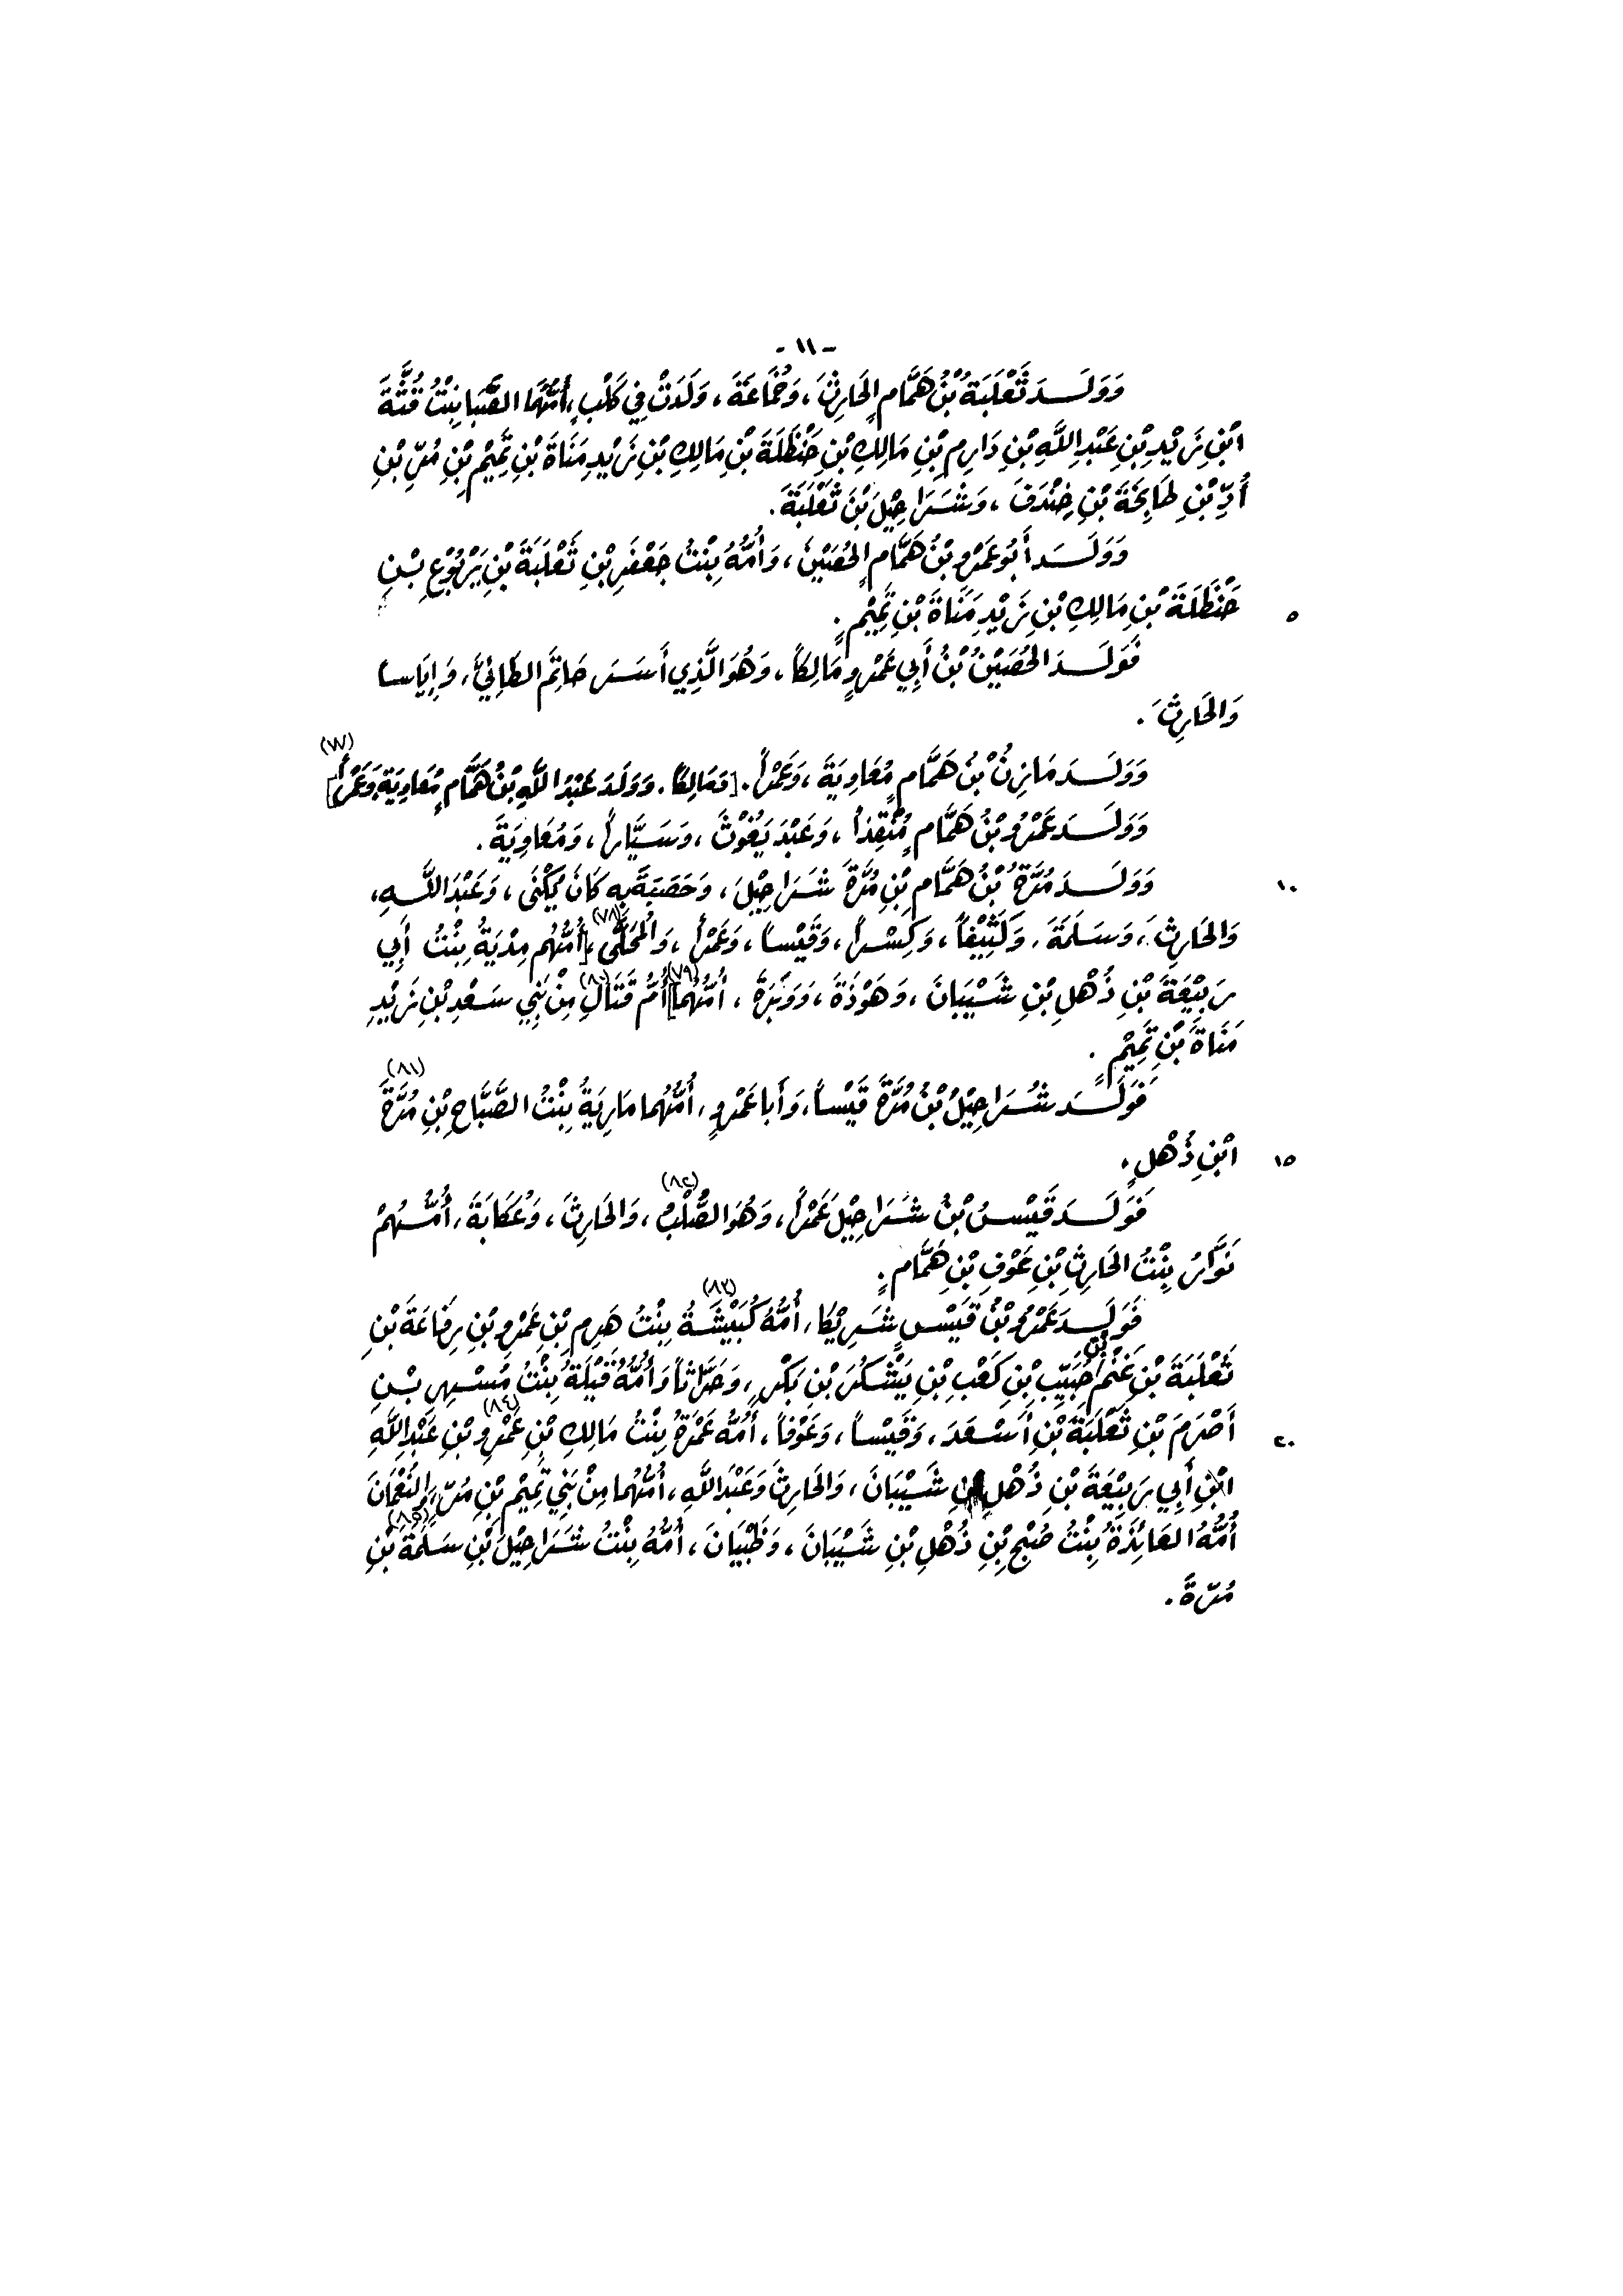 - ١١ -
وَوَلَـــدَ ثَعْلَبَةُ بْنُ هَمَّامٍ الحَارِثَ، وَخُمَاعَةَ، وَلَدَتْ فِي كَلْبٍ، أُمُّهُمَا الصَّبَا بِنْتُ قُنَّةَ
ابْنِ زَيْدِ بْنِ عَبْدِ اللَّهِ بْنِ دَارِمِ بْنِ مَالِكِ بْنِ حَنْظَلَةَ بْنِ مَالِكِ بْنِ زَيْدِ مَنَاةَ بْنِ تَمِيْمِ بْنِ مُرِّ بْنِ
أُدِّ بْنِ طَابِخَةَ بْنِ خِنْدَفَ، وَشَرَاحِيْلَ بْنَ ثَعْلَبَةَ.
وَوَلَـــدَ أَبُو عَمْرِو بْنُ هَمَّامٍ الحُصَيْنَ، وَأُمُّهُ بِنْتُ جَعْفَرِ بْنِ ثَعْلَبَةَ بْنِ يَرْبُوْعِ بْـنِ
حَنْظَلَةَ بْنِ مَالِكِ بْنِ زَيْدِ مَنَاةَ بْنِ تَمِيْمٍ. ٥
فَوَلَـــدَ الحُصَيْنُ بْنُ أَبِي عَمْرٍو مَالِكاً، وَهُوَ الَّذِي أَسَـرَ حَاتِمَ الطَائِيَّ، وَإِيَاسـاً
وَالحَارِثَ.
وَوَلَـــدَ مَازِنُ بْنُ هَمَّامٍ مُعَاوِيَةَ، وَعَمْراً. [وَمَالِكاً. وَوَلَدَ عَبْدُ اللَّهِ بْنُ هَمَّامٍ مُعَاوِيَةَ وَعَمْراً] (٧٧)
وَوَلَـــدَ عَمْرُو بْنُ هَمَّامٍ مُنْقِذاً، وَعَبْدَ يَغُوْثَ، وَسَيَّاراً، وَمُعَاوِيَةَ.
وَوَلَـــدَ مُرَّةُ بْنُ هَمَّامِ بْنِ مُرَّةَ شَرَاحِيْلَ، وَحَصَبَةَ بِهِ كَانَ يُكْنَى، وَعَبْدَ اللَّـهِ، ١٠
وَالحَارِثَ، وَسَلَمَةَ، وَكَثِيْفاً، وَكِسْـراً، وَقَيْساً، وَعَمْراً، وَالْمُحَلَّى (٧٨)، [أُمُّهُم مِدْيَةُ بِنْتُ أَبِي
رَبِيْعَةَ بْنِ ذُهْلِ بْنِ شَـيْبَانَ، وَهَوْذَةَ، وَوَبَرَةَ، أُمُّهُمَا] (٧٩) أُمُّ قَتَالٍ (٨٠) مِنْ بَنِي سَعْدِ بْنِ زَيْدِ
مَنَاةَ بْنِ تَمِيْمٍ.
فَوَلَـــدَ شَرَاحِيْلُ بْنُ مُرَّةَ قَيْساً، وَأَبا عَمْرٍو، أُمُّهُما مَارِيَةُ بِنْتُ الصَّبَّاحِ بْنِ مُرَّةَ (٨١)
ابْنِ ذُهْلٍ. ١٥
فَوَلَـــدَ قَيْسُ بْنُ شَرَاحِيْلَ عَمْراً، وَهُوَ الصُّلْبُ (٨٢)، وَالحَارِثَ، وَعُكَابَةَ، أُمُّـهُمْ
نَوَّارُ بِنْتُ الحَارِثِ بْنِ عَوْفِ بْنِ هَمَّامٍ.
فَوَلَـــدَ عَمْرُو بْنُ قَيْسٍ شَرِيْكَا، أُمُّهُ كُبَيْشَـةُ (٨٣) بِنْتُ هَرِمِ بْنِ عَمْرِو بْنِ رِفَاعَةَ بْنِ
ثَعْلَبَةَ بْنِ غَنْمِ بْنِ حُبَيِّبِ بْنِ كَعْبِ بْنِ يَشْكُرَ بْنِ بَكْرٍ، وَحَرَّاثاً وَأُمُّهُ قَيْلَةُ بِنْتُ مُسْـهِرِ بْـنِ
أَصْرَمَ بْنِ ثَعْلَبَةَ بْنِ أَسْعَدَ، وَقَيْساً، وَعَوْفاً، أُمُّهُ عَمْرَةُ بِنْتُ مَالِكِ بْنِ عَمْرِو (٨٤) بْنِ عَبْدِ اللَّهِ ٢٠
ابْنِ أَبِي رَبِيْعَةَ بْنِ ذُهْلِ بْنِ شَـيْبَانَ، وَالحَارِثَ وَعَبْدَ اللَّهِ، أُمُّهُما مِنْ بَنِي تَمِيْمِ بْنِ مُرٍّ، وَالنُّعْمَانَ
أُمُّهُ العَائِذَةُ بِنْتُ صُبْحِ بْنِ ذُهْلِ بْنِ شَـيْبَانَ، وَظَبْيَانَ، أُمُّهُ بِنْتُ شَرَاحِيْلَ بْنِ سَلَمَةَ (٨٥) بْنِ
مُرَّةَ.